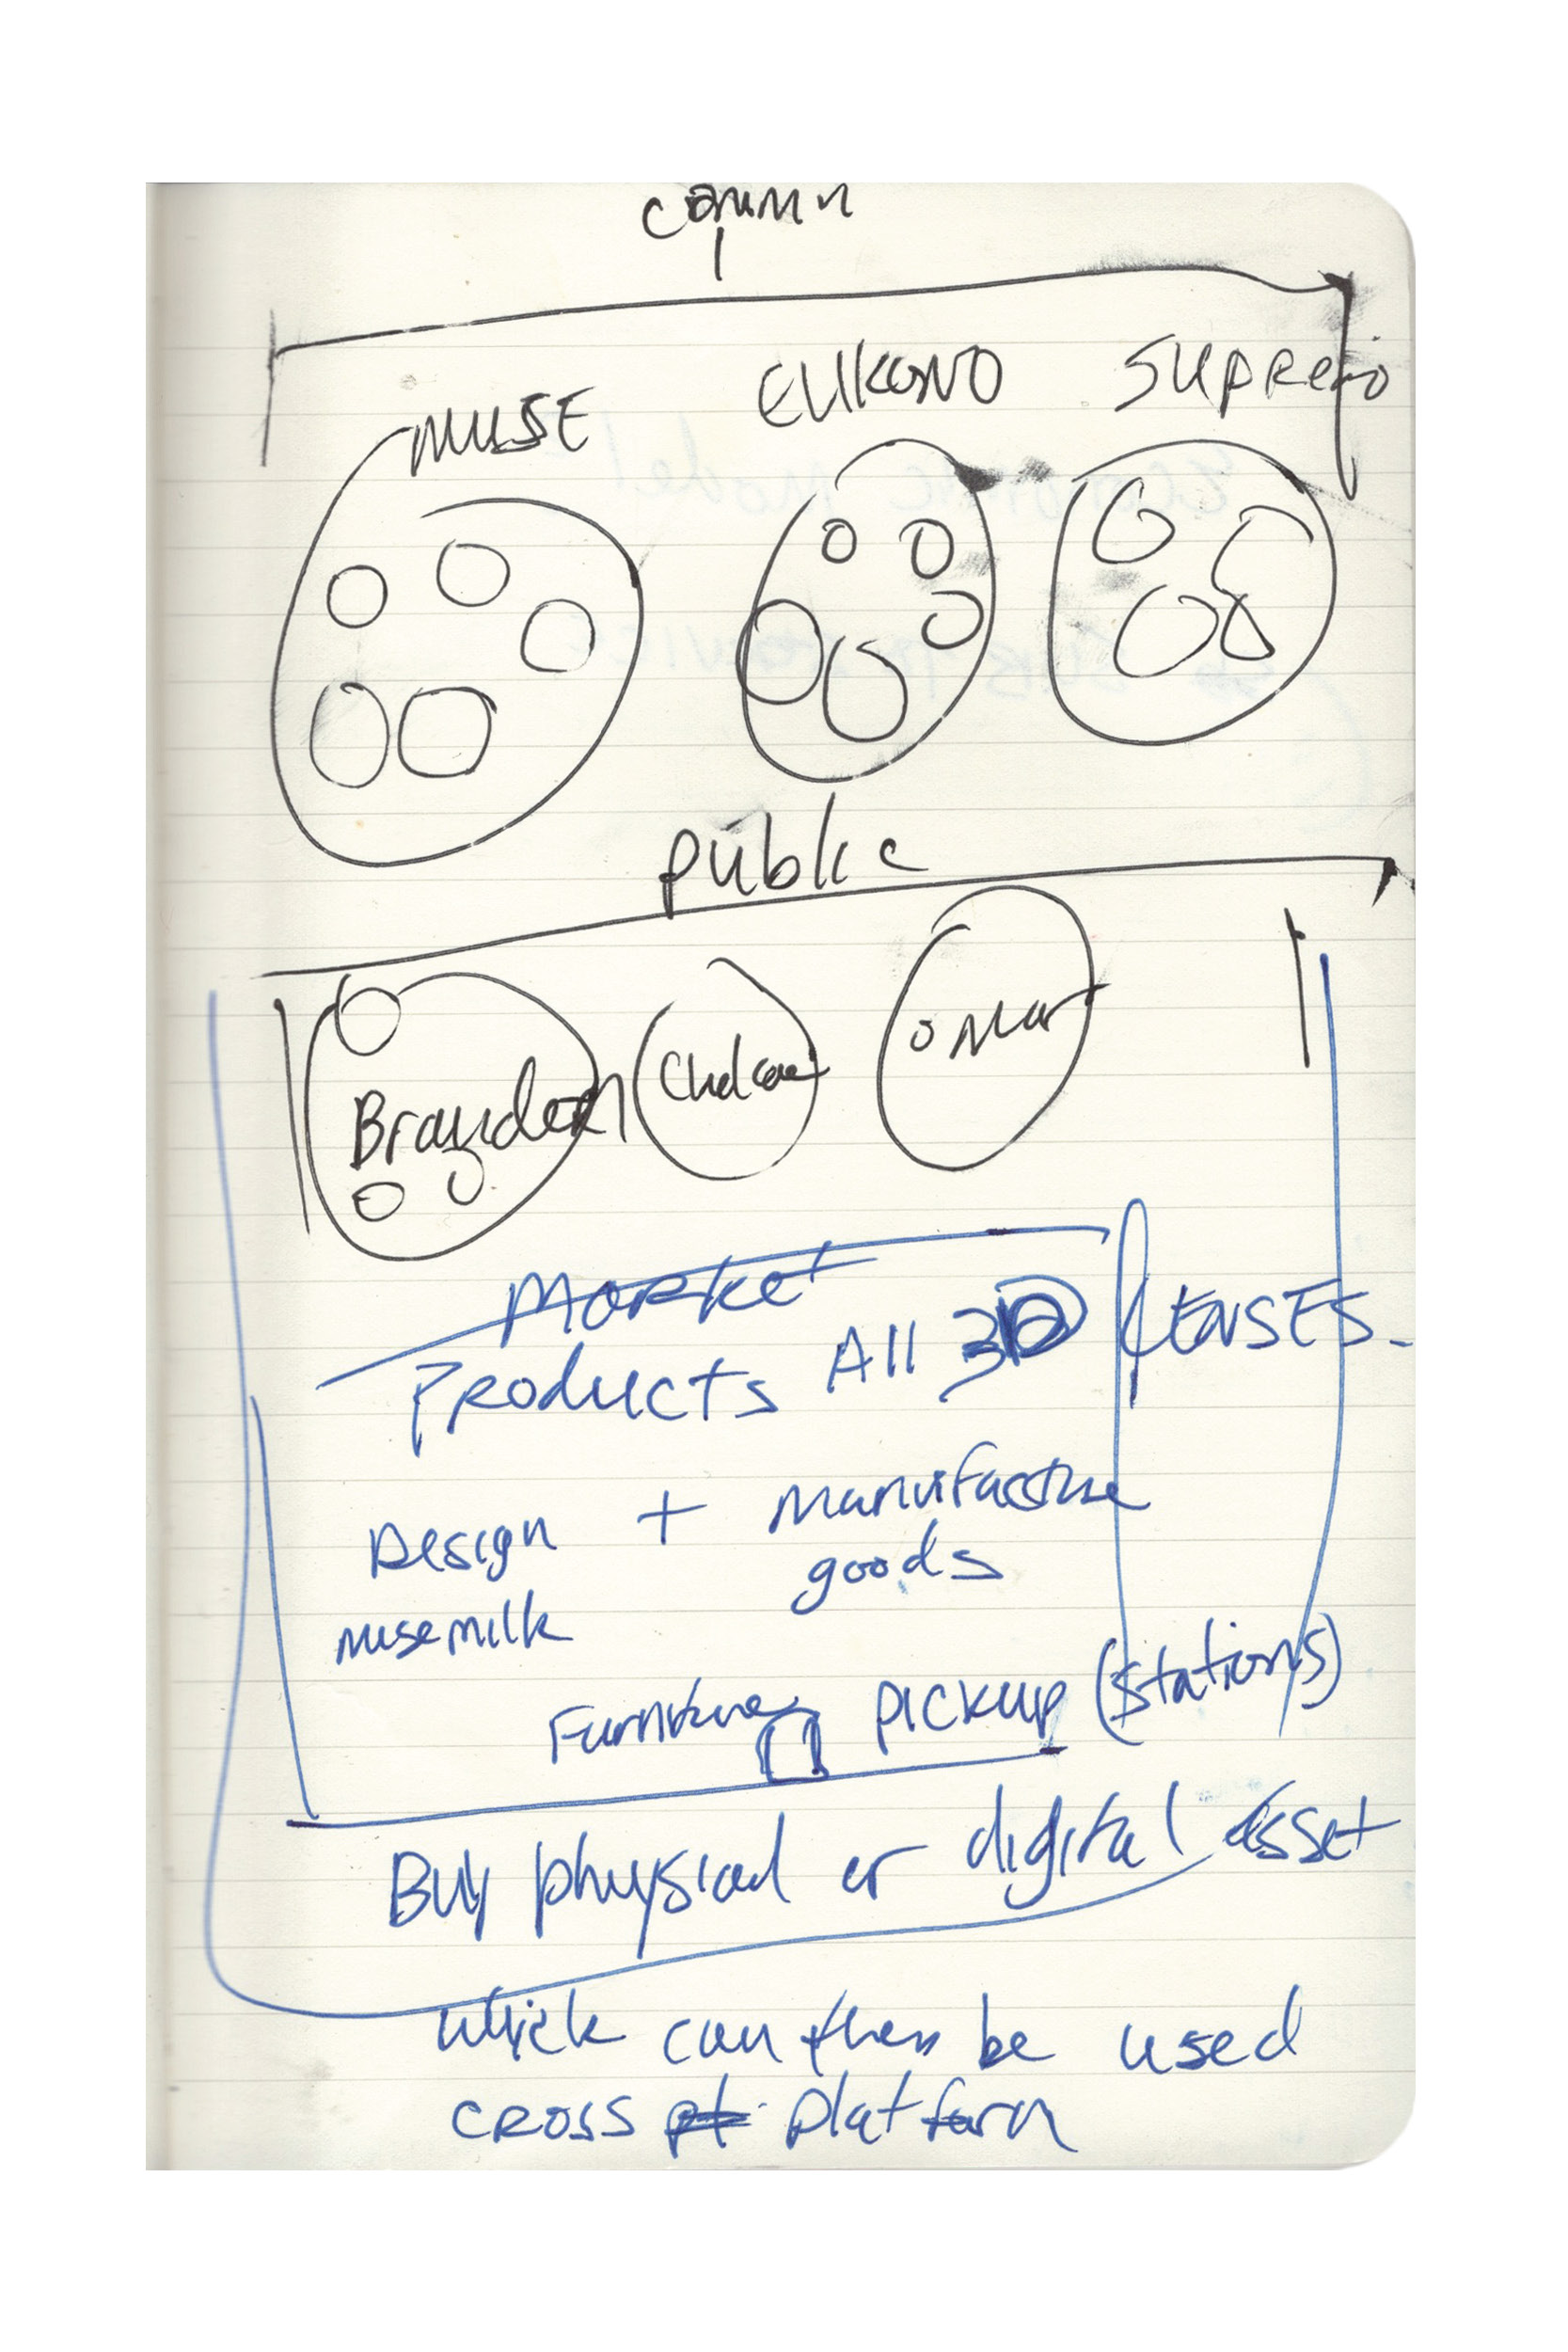 MUSE
public
Brayden
omar
Market
Products All 3D LENSES
Design + manufacture
goods
musemilk
Furniture pickup (stations)
Buy physical or digital asset
which can then be used
cross pt platform